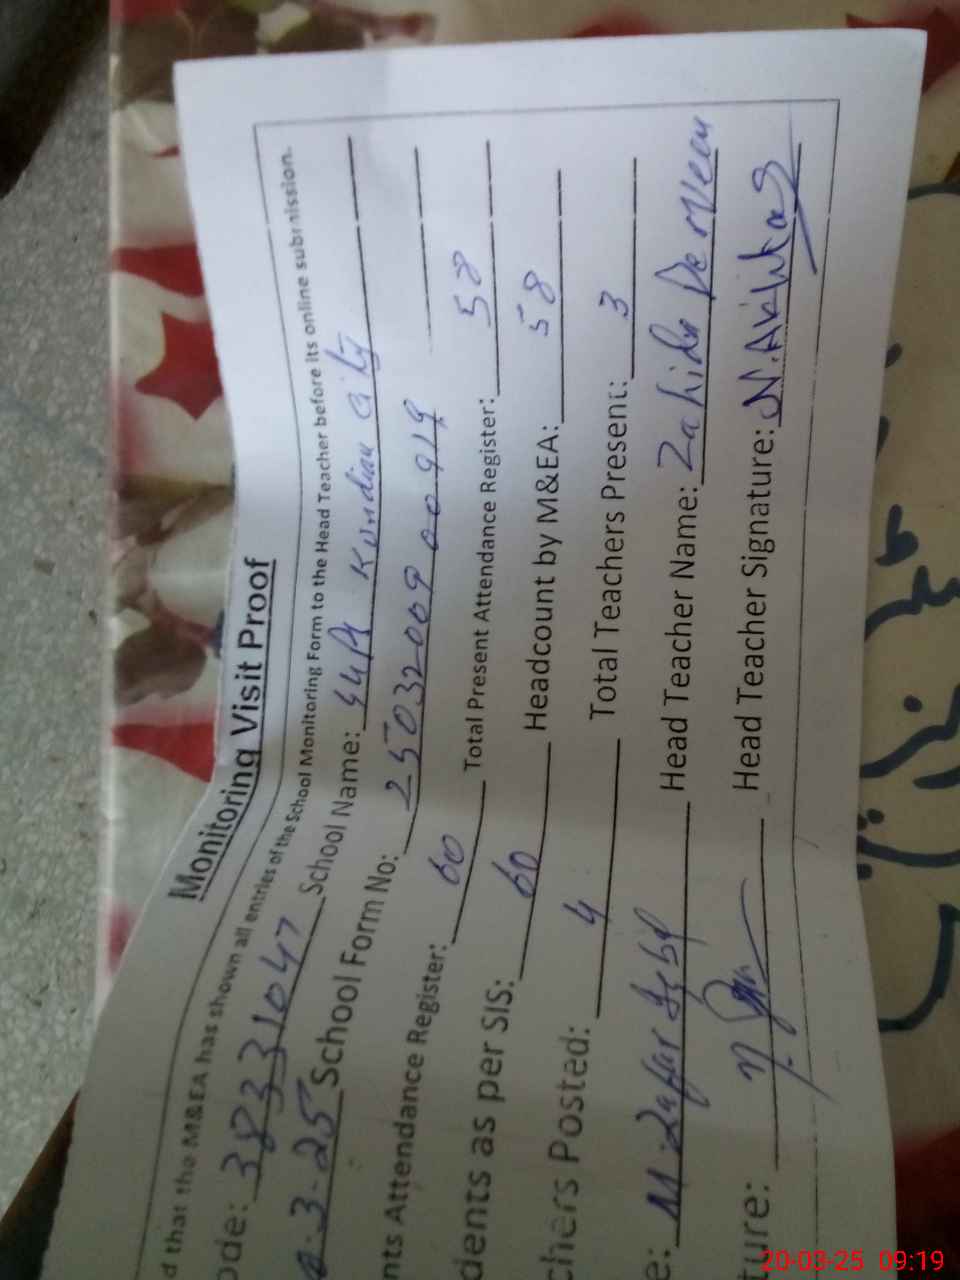 Monitoring Visit Proof
d that the M&EA has shown all entries of the School Monitoring Form to the Head Teacher before its online submission.
ode: 38331047 School Name: Kundian City
3-25 School Form No: 2503200900919
nts Attendance Register: 60 Total Present Attendance Register: 58
dents as per SIS: 60 Headcount by M&EA: 58
chers Posted: 4 Total Teachers Present: 3
e: M. Zafar Iqbal Head Teacher Name: Zahida Perveen
ture: Head Teacher Signature: N. Akhtar
20-03-25 09:19